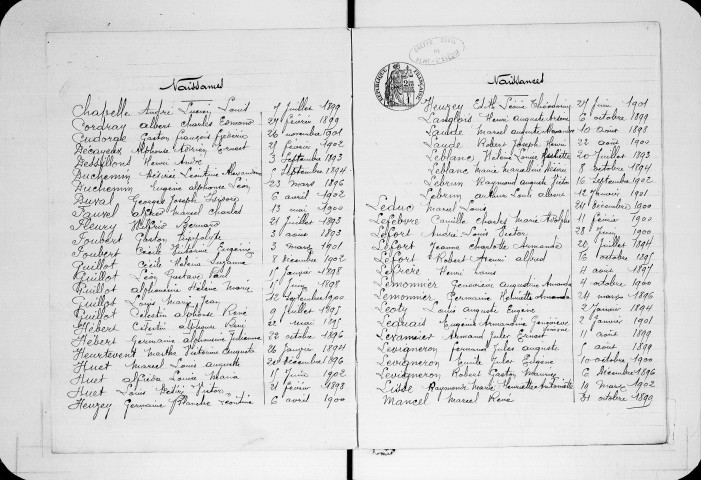 Naissances
Chapelle André Lucien Louis 7 Juillet 1899
Cordray albert Charles Edmond 24 février 1899
Eudorge Gaston françois frédéric 26 novembre 1901
Decayeux Alphonse Adrien Ernest 21 février 1902
Henri André 3 Septembre 1893
Duchemin Désirée Léontine Alexandrine Septembre 1894
Duchemin Eugène alphonse Léon 23 mars 1896
Duval Georges Joseph Isidore 6 avril 1902
Fauvel alfred Marcel Charles 13 mai 1900
Fleury Wilfrid Bernard 21 Juillet 1893
Foubert Gaston hippolyte 3 août 1893
Foubert Cécile Victorine Eugénie 3 mars 1901
Guillot Cécile Helena Suzanne 8 décembre 1902
Guillot Léon Gustave Paul Janvier 1898
Guillot alphonsine Hélène Marie Juin 1898
Guillot Louis Marie Jean 12 Septembre 1900
Guillot Célestin alphonse René 9 Juillet 1895
Hébert Célestin alphonse René 22 mai 1895
Hébert Germaine alphonsine Julienne 22 octobre 1896
Heurtevent Marthe Victorine Augusta 26 Janvier 1894
Huet Marcel Louis auguste 20 décembre 1896
Huet alfréda Louise Maria Juin 1902
Huet Louis Victor 21 février 1893
Heuzey Germaine Blanche Léontine 6 avril 1900
Naissances
RÉPUBLIQUE FRANÇAISE
Heuzey Edith Théodorine 24 Juin 1901
Langlois Henri auguste Arsène 6 octobre 1899
Laude Marcel auguste Alexandre 10 août 1898
Laude Robert Joseph Henri 22 août 1900
Leblanc Helene Louise 20 Juillet 1893
Leblanc Marie Marcelline Désirée 8 octobre 1894
Lebrun Raymond auguste Victor 16 Septembre 1902
Lebrun arthur Louis albert 12 Janvier 1901
Leduc Marcel Louis 24 décembre 1900
Lefebvre Camille Charles Marie Adolphe 11 février 1900
Lefort André Louis Victor 28 Juin 1900
Lefort Jeanne Charlotte Armande 20 Juillet 1894
Lefort Robert Henri alfred 16 octobre 1895
Henri Louis 4 août 1897
Lemonnier Geneviève augustine Amanda 4 octobre 1900
Lemonnier Germaine Henriette Amanda 24 mars 1896
Louis auguste Eugène 2 Janvier 1894
Eugénie Armandine Geneviève 2 Janvier 1901
Levavasseur Armand Jules Ernest août 1899
Levigneron fernand Jules auguste août 1899
Levigneron Jules Eugène 10 octobre 1900
Levigneron Robert Gaston Maurice 6 Décembre 1896
Raymonde Marie Henriette Antoinette 19 Mars 1902
Mancel Marcel René 31 octobre 1899